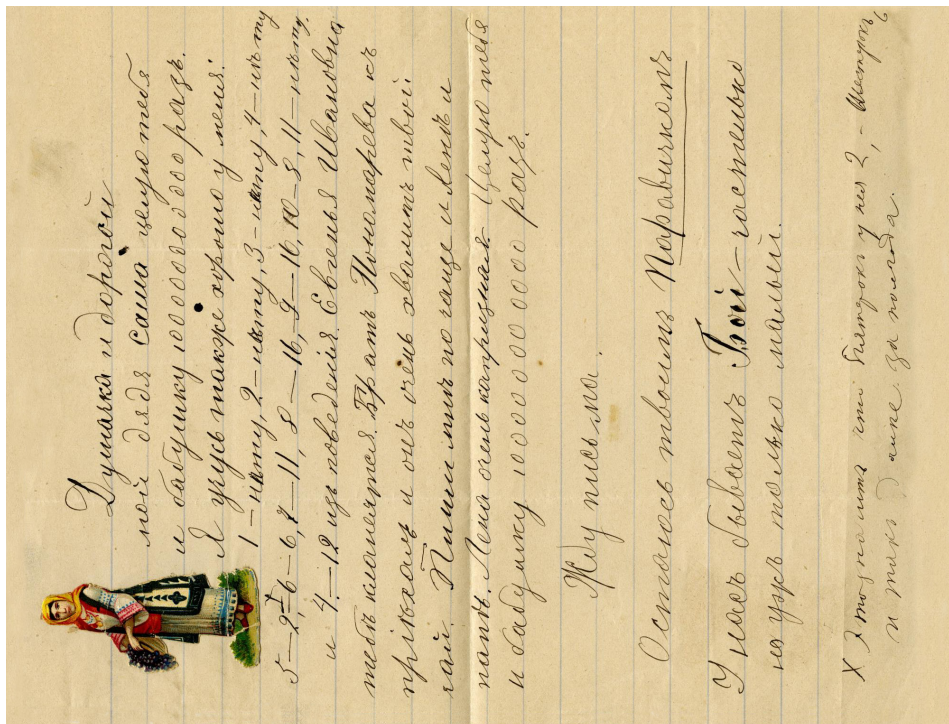 Думачка и дорогой
мой дядя Саша целую тебя
и бабушку 10000000000 разъ.
Я учусь также хорошо у меня:
1 — нѣту, 2 — нѣту, 3 — нѣту, 4 — нѣту
5 — 2, 6 — 6, 7 — 11, 8 — 16, 9 — 10, 10 — 8, 11 — нѣту,
и 4 — 12 изъ поведенія. Евгенья Ивановна
тебѣ кланяется. Братъ Пономарева къ
пріѣхалъ и онъ очень хвалитъ твой
чай. Пиши мнѣ по чаще и Ленѣ и
папѣ. Лена очень капризная. Целую тебя
и бабушку 10000000000 разъ.
Жду письма.
Остаюсь твоимъ
У насъ бываетъ — частенько
но ужъ только малый.
X Это значитъ что пятерокъ у меня 2, — шестерокъ 6
и такъ далѣе за полгода.